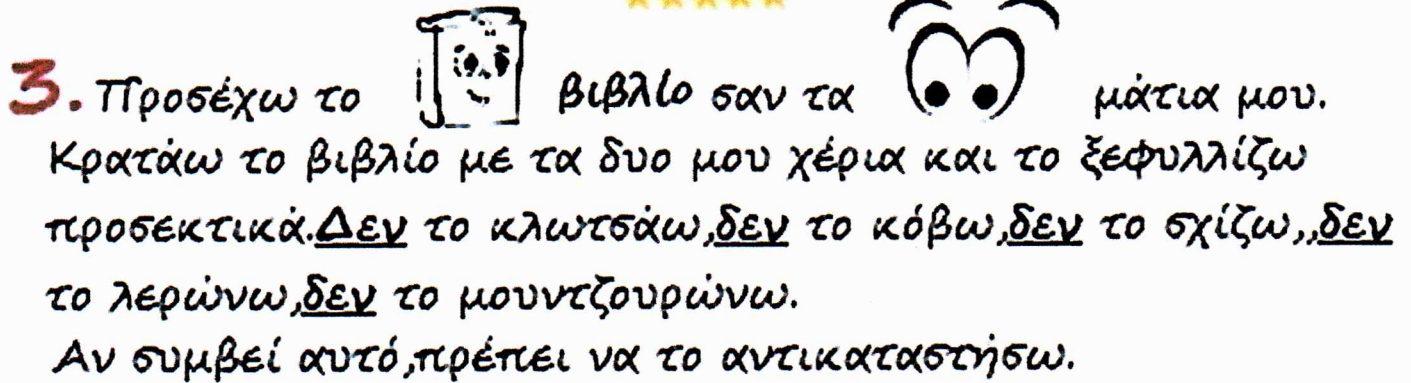 3. Προσέχω το βιβλίο σαν τα μάτια μου.
Κρατάω το βιβλίο με τα δυο μου χέρια και το ξεφυλλίζω
προσεκτικά.Δεν το κλωτσάω,δεν το κόβω,δεν το σχίζω,,δεν
το λερώνω,δεν το μουντζουρώνω.
Αν συμβεί αυτό,πρέπει να το αντικαταστήσω.